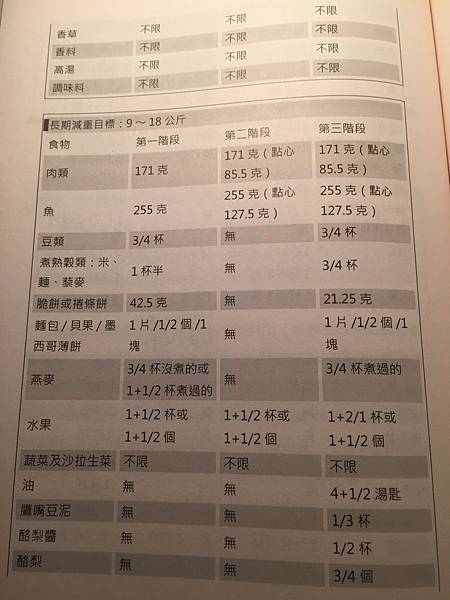 香草 不限 不限 不限
香料 不限 不限 不限
高湯 不限 不限 不限
調味料 不限 不限 不限
長期減重目標：9～18公斤
食物 第一階段 第二階段 第三階段
肉類 171 克 171 克（點心 85.5 克） 171 克（點心 85.5 克）
魚 255 克 255 克（點心 127.5 克） 255 克（點心 127.5 克）
豆類 3/4 杯 無 3/4 杯
煮熟穀類：米、麵、藜麥 1 杯半 無 3/4 杯
脆餅或捲條餅 42.5 克 無 21.25 克
麵包/貝果/墨西哥薄餅 1 片/1/2 個/1 塊 無 1 片/1/2 個/1 塊
燕麥 3/4 杯沒煮的或 1+1/2 杯煮過的 無 3/4 杯煮過的
水果 1+1/2 杯或 1+1/2 個 1+1/2 杯或 1+1/2 個 1+2/1 杯或 1+1/2 個
蔬菜及沙拉生菜 不限 不限 不限
油 無 無 4+1/2 湯匙
鷹嘴豆泥 無 無 1/3 杯
酪梨醬 無 無 1/2 杯
酪梨 無 無 3/4 個